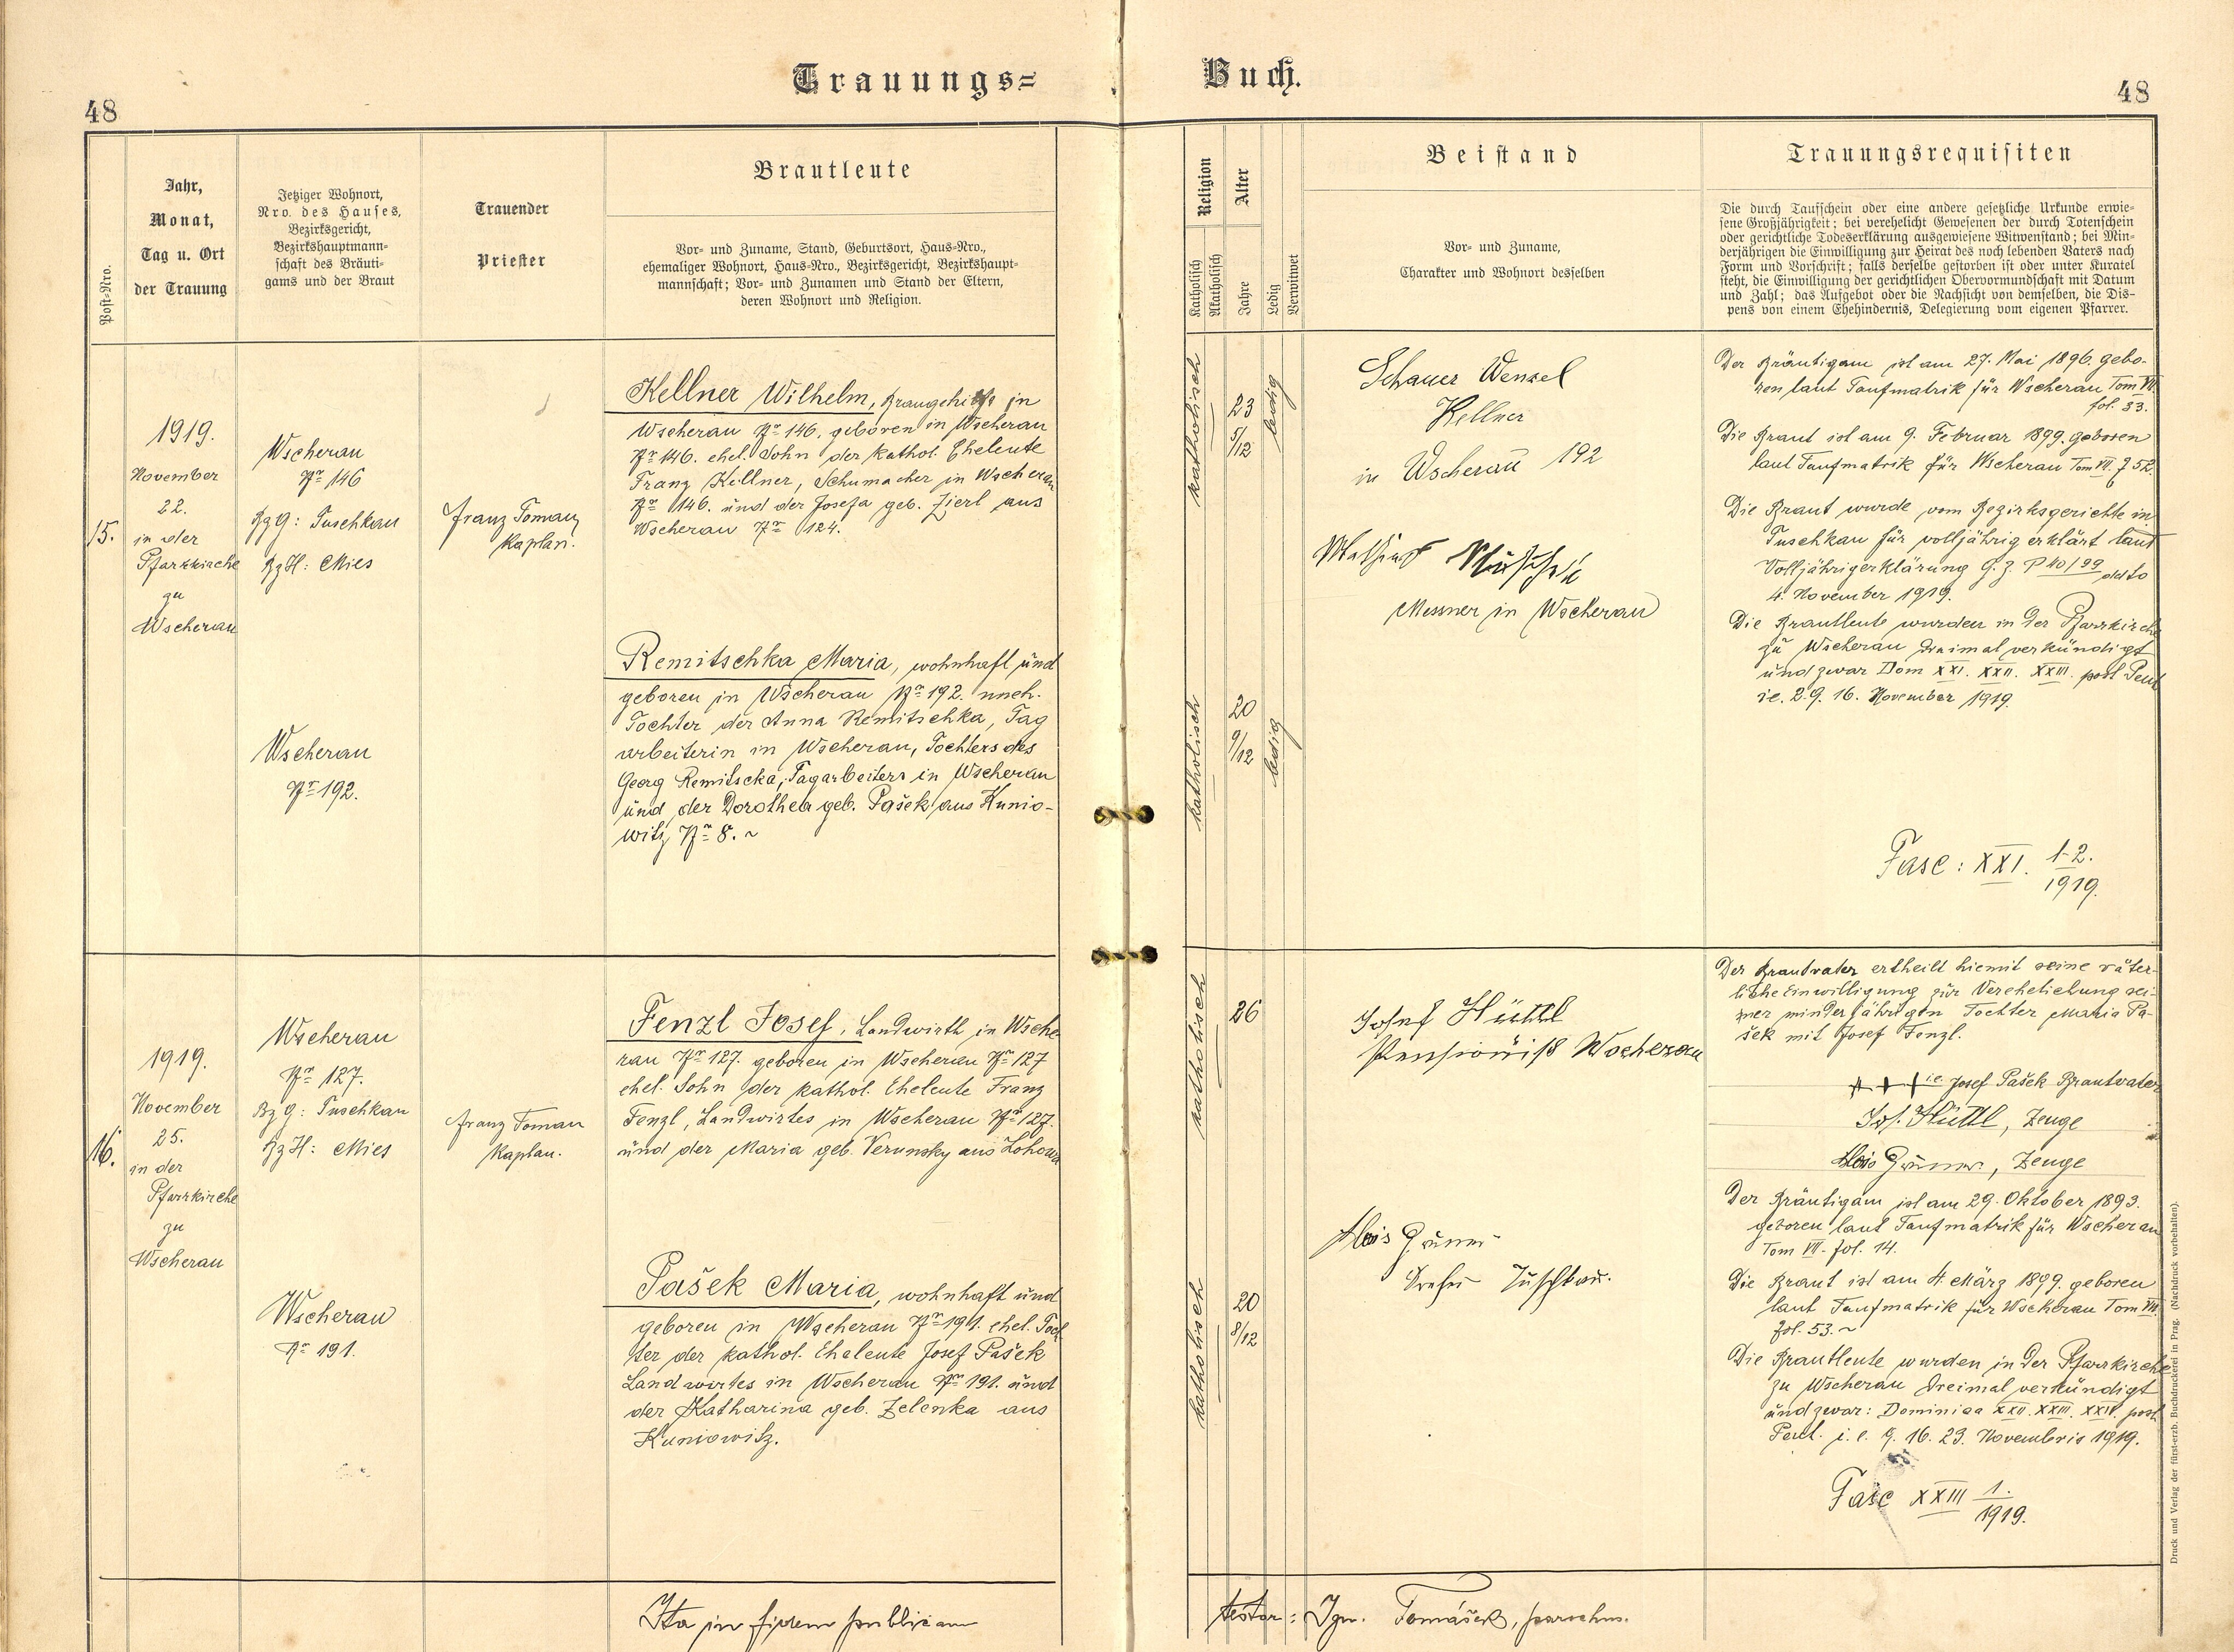 Trauungs=
Buch.
48
48
Post-Nro.
Jahr,
Monat,
Tag u. Ort
der Trauung
Jetziger Wohnort,
Nro. des Hauses,
Bezirksgericht,
Bezirkshauptmann=
schaft des Bräuti=
gams und der Braut
Trauender
Priester
Brautleute
Vor- und Zuname, Stand, Geburtsort, Haus-Nro.,
ehemaliger Wohnort, Haus-Nro., Bezirksgericht, Bezirkshaupt=
mannschaft; Vor- und Zunamen und Stand der Eltern,
deren Wohnort und Religion.
Religion
Katholisch
Akatholisch
Alter
Jahre
Ledig
Verwitwet
Beistand
Vor- und Zuname,
Charakter und Wohnort desselben
Trauungsrequisiten
Die durch Taufschein oder eine andere gesetzliche Urkunde erwie=
sene Großjährigkeit; bei verehelicht Gewesenen der durch Totenschein
oder gerichtliche Todeserklärung ausgewiesene Witwenstand; bei Min=
derjährigen die Einwilligung zur Heirat des noch lebenden Vaters nach
Form und Vorschrift; falls derselbe gestorben ist oder unter Kuratel
steht, die Einwilligung der gerichtlichen Obervormundschaft mit Datum
und Zahl; das Aufgebot oder die Nachsicht von demselben, die Dis=
pens von einem Ehehindernis, Delegierung vom eigenen Pfarrer.
15.
1919.
November
22.
in der
Pfarrkirche
zu
Wscherau
Wscherau
Nr 146
BzG: Tuschkau
BzH: Mies
Wscherau
Nr 192.
Franz Toman
Kaplan.
Kellner Wilhelm, Braugehilfe in
Wscherau Nr 146. geboren in Wscherau
Nr 146. ehel. Sohn der kathol. Eheleute
Franz Kellner, Schumacher in Wscherau
Nr 146. und der Josefa geb. Zierl aus
Wscherau Nr 124.
Remitschka Maria, wohnhaft und
geboren in Wscherau Nr 192. uneh.
Tochter der Anna Remitschka, Tag
arbeiterin in Wscherau, Tochters des
Georg Remitscka, Tagarbeiters in Wscherau
und der Dorothea geb. Pašek aus Kunio-
witz Nr 8. ~
katholisch
23
5/12
ledig
katholisch
20
9/12
ledig
Schauer Wenzel
Kellner
in Wscherau 192
Messner in Wscherau
Der Bräutigam ist am 27. Mai 1896. gebo-
ren laut Taufmatrik für Wscherau Tom VII.
fol. 33.
Die Braut ist am 9. Februar 1899. geboren
laut Taufmatrik für Wscherau Tom VII. f 52.
Die Braut wurde vom Bezirksgerichte in
Tuschkau für volljährig erklärt laut
Volljährigerklärung G. z. P 40/99 ddto
4. November 1919.
Die Brautleute wurden in der Pfarrkirche
zu Wscherau dreimal verkündigt
und zwar Dom XXI. XXII. XXIII. post Pent
ie. 2. 9. 16. November 1919.
Fasc: XXI. 1-2.
1919.
16.
1919.
November
25.
in der
Pfarrkirche
zu
Wscherau
Wscherau
Nr 127.
Bzg: Tuschkau
BzH: Mies
Wscherau
Nr 191.
Franz Toman
Kaplan.
Fenzl Josef, Landwirth in Wsche
rau Nr 127. geboren in Wscherau Nr 127
ehel. Sohn der kathol. Eheleute Franz
Fenzl, Landwirtes in Wscherau Nr 127.
und der Maria geb. Verunsky aus Lohowa
Pašek Maria, wohnhaft und
geboren in Wscherau Nr 191. ehel. Toch
ter der kathol. Eheleute Josef Pašek
Landwirtes in Wscherau Nr 191. und
der Katharina geb. Zelenka aus
Kuniowitz.
katholisch
26
katholisch
20
8/12
Josef Hüttl
Pensionist Wscherau
Alois Gruner
Tuschkau.
Der Brautvater ertheilt hiemit seine väter-
liche Einwilligung zür Verehelichung sei-
ner minderjährigen Tochter Maria Pa-
šek mit Josef Fenzl.
+ + + i.e. Josef Pašek Brautvater
Jos. Hüttl, Zeuge
Alois Gruner, Zeuge
Der Bräutigam ist am 29. Oktober 1893.
geboren laut Taufmatrik für Wscherau
Tom VII. fol. 14.
Die Braut ist am 4. März 1899. geboren
laut Taufmatrik für Wscherau Tom VII.
fol. 53. ~
Die Brautleute wurden in der Pfarrkirche
zu Wscherau dreimal verkündigt
und zwar: Dominica XXII. XXIII. XXIV. post
Pent. i. e. 9. 16. 23. Novembris 1919.
Fasc XXIII 1.
1919.
Ita in fidem publicam
testor: Ign. Tomášek, parochus.
Druck und Verlag der fürst-erzb. Buchdruckerei in Prag. (Nachdruck vorbehalten).